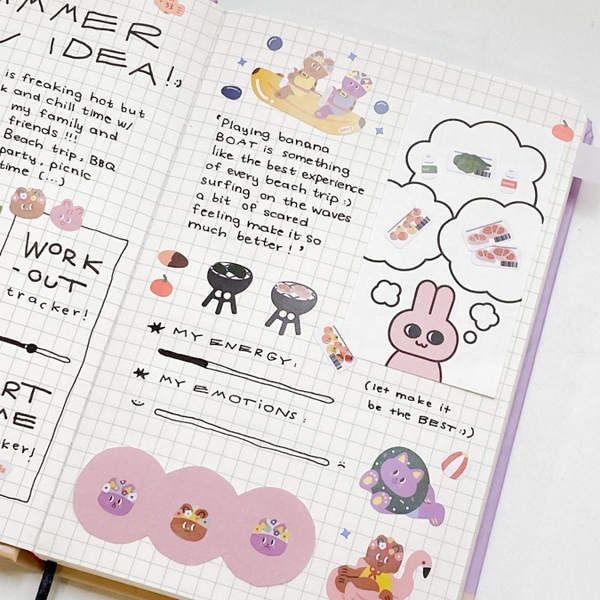 MMER
IDEA!:)
is freaking hot but
k and chill time w/
my family and
friends !!!
Beach trip, BBQ
party, picnic
time (...)
WORK
-OUT
tracker!
RT
ME
cker!
"Playing banana
BOAT is something
like the best experience
of every beach trip :)
surfing on the waves
a bit of scared
feeling make it so
much better!"
* MY ENERGY:
* MY EMOTIONS:
(let make it
be the BEST :))